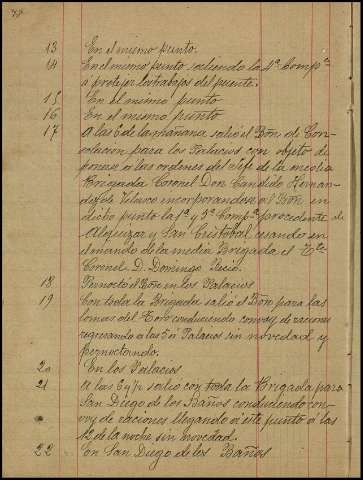 13 En el mismo punto.
14 En el mismo punto saliendo la 4ª Compª
á protejer los trabajos del puente.
15 En el mismo punto
16 En el mismo punto
17 A las 6 de la mañana salió el Bón de Con-
solacion para los Palacios con objeto de
ponerse á las ordenes del Jefe de la media
Brigada Coronel Don Candido Hernan-
dez de Velasco incorporandose al Bón en
dicho punto la 1ª y 5ª Compª procedente de
Alquizar y San Cristobal cesando en
el mando de la media Brigada el Tte
Coronel D. Domingo
18 Pernoctó el Bón en los Palacios
19 Con toda la Brigada salió el Bón para las
lomas del Toro conduciendo convoy de raciones
regresando á las 5 á Palacios sin novedad y
pernoctando.
20 En los Palacios
21 A las 6 y ½ salio con toda la Brigada para
San Diego de los Baños conduciendo con-
voy de raciones llegando á este punto á las
12 de la noche sin novedad.
22 En San Diego de los Baños